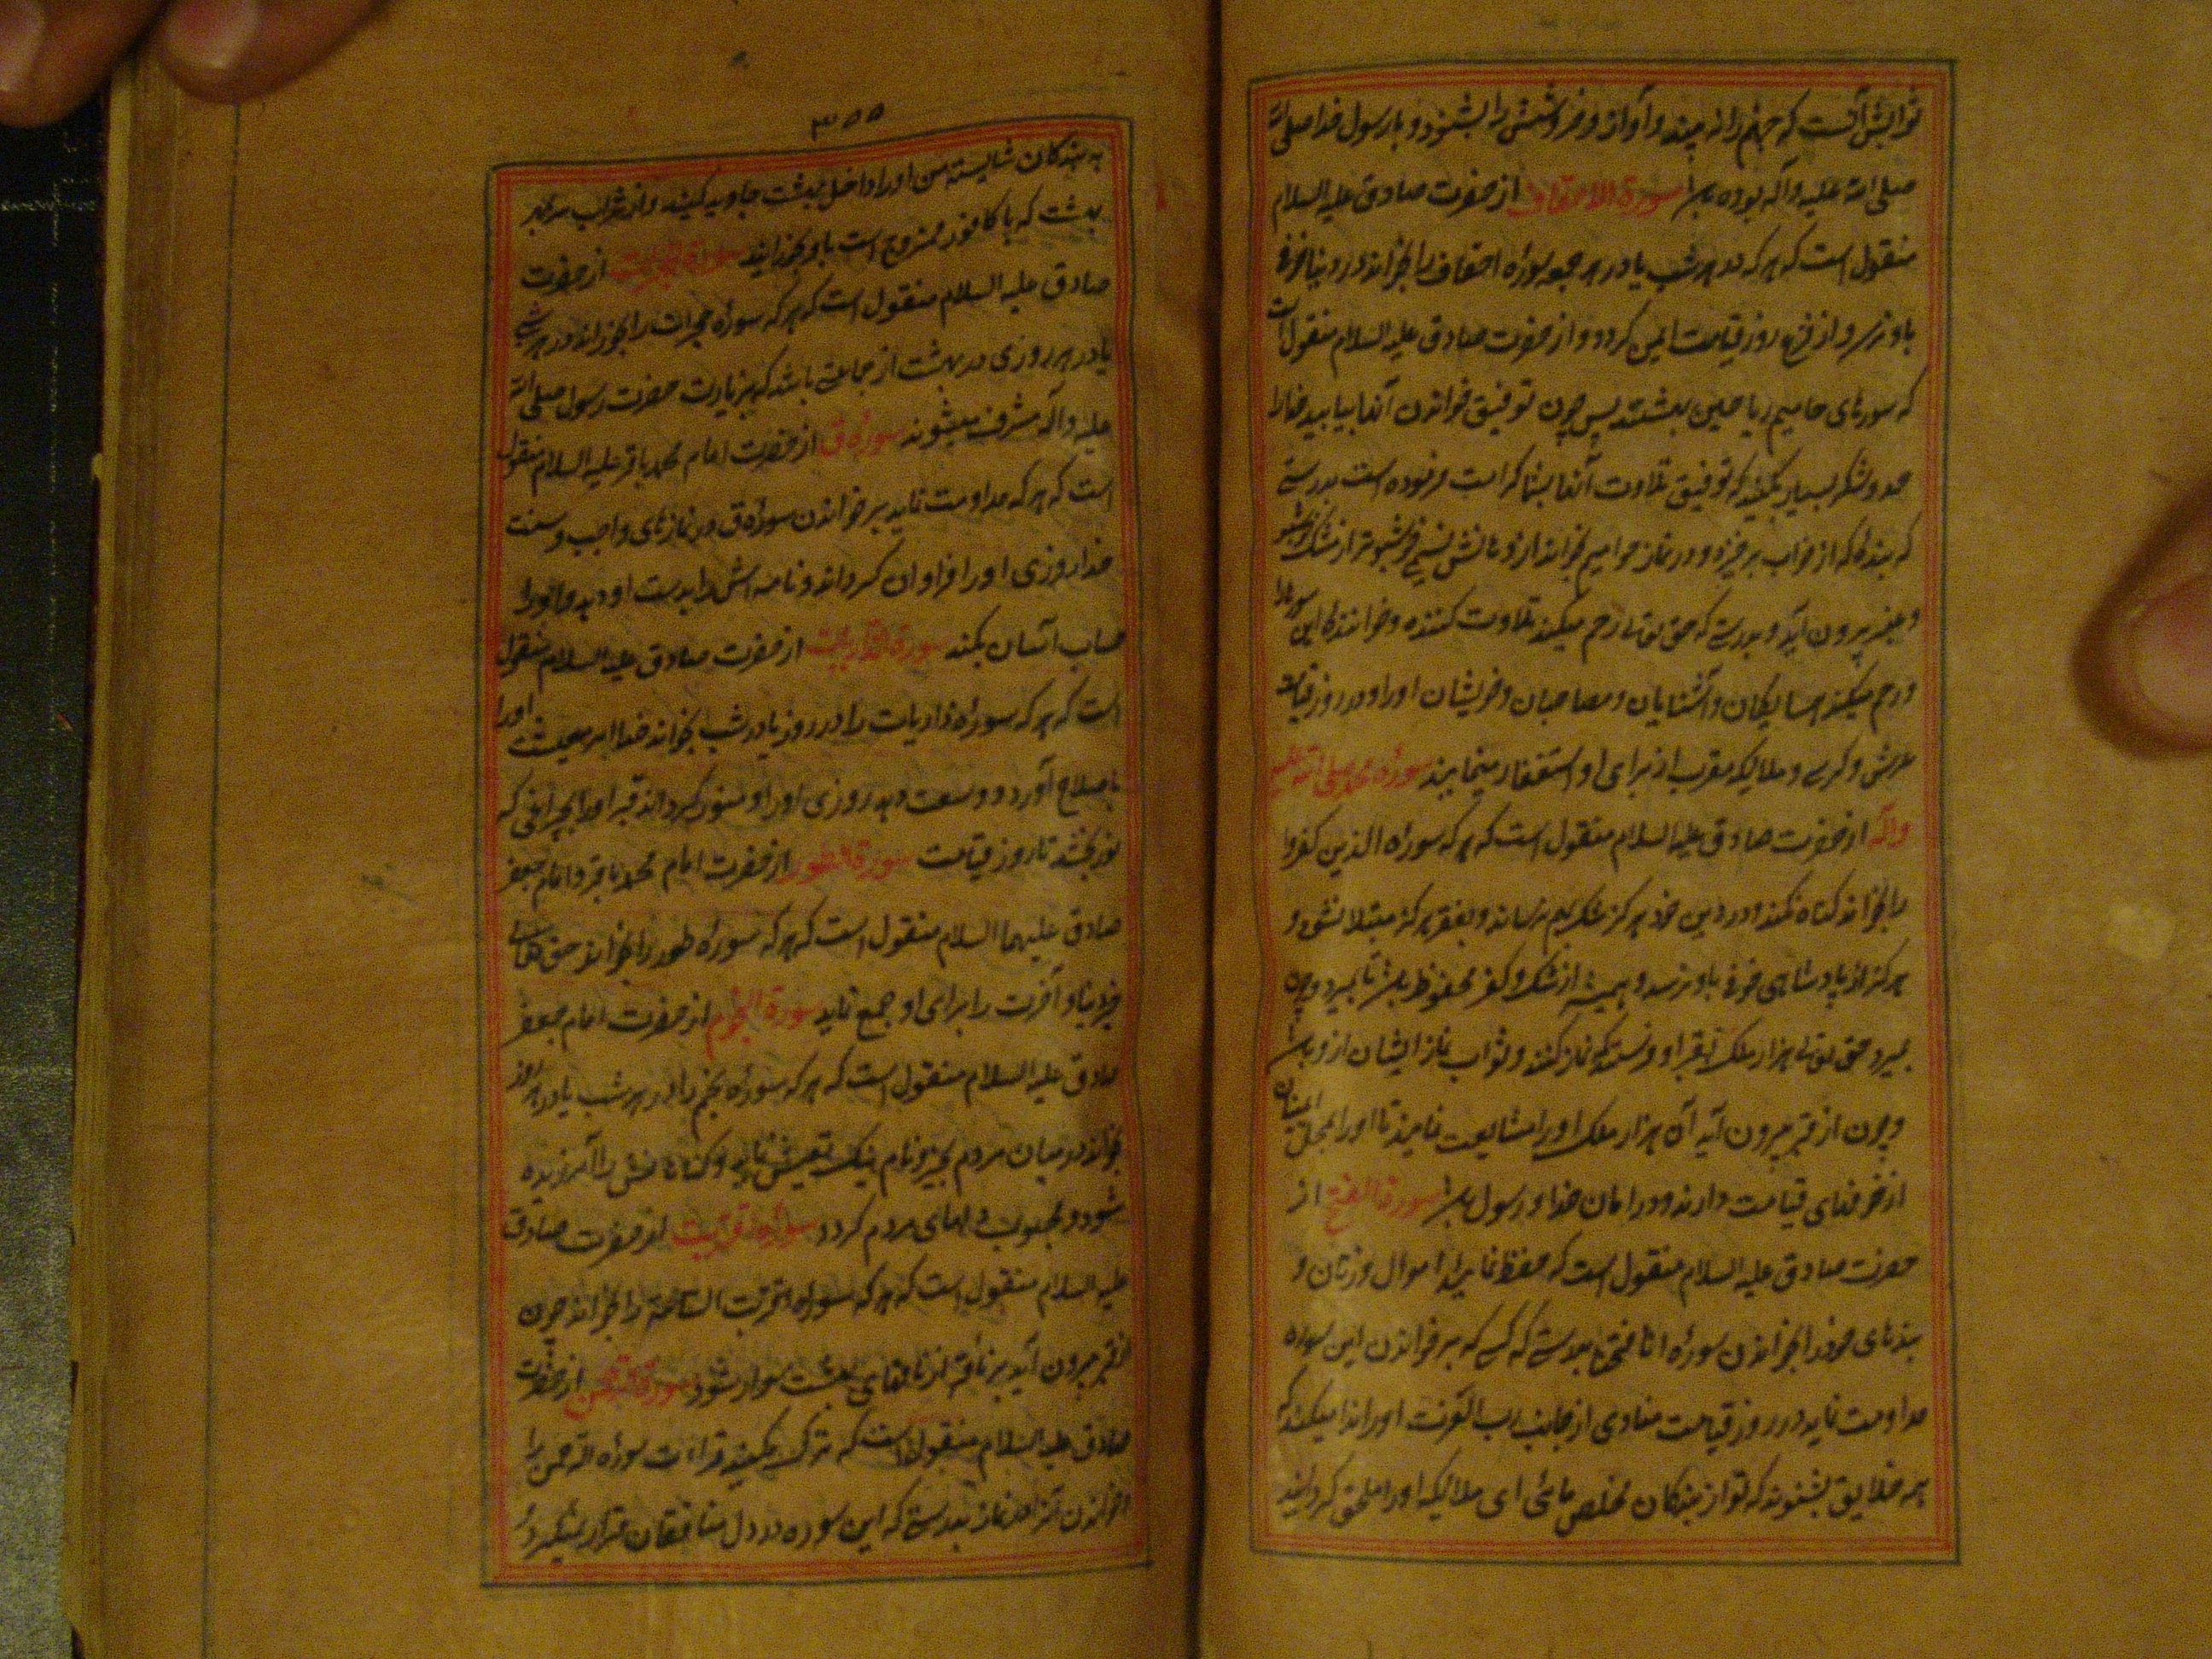 ثوابش آنست که جهنم را نه بیند و آواز و خروشش را نشنود و با رسول خدا صلی الله
صلی الله علیه و آله بوده باشد سورة الاحقاف از حضرت صادق علیه السلام
منقول است که هر که در هر شب یا در هر جمعه سورهٔ احقاف را بخواند در دنیا خوفی
باو نرسد و از فزع روز قیامت ایمن گردد و از حضرت صادق علیه السلام منقول است
که سورهای حامیم ریاحین بهشتند پس چون توفیق خواندن آنها بیابید خدا را
حمد و شکر بسیار بکنید که توفیق تلاوت آنها بشما کرامت فرموده است بدرستی
که بنده که از خواب برخیزد و در نماز حوامیم بخواند از دهانش نسیمی خوشبوتر از مشک
و عنبر بیرون آید و بدرستی که حق تعالی رحم میکند تلاوت کننده و خوانندهٔ این سورها را
و رحم میکند همسایگان و آشنایان و مصاحبان و خویشان او را و در روز قیامت
عرش و کرسی و ملایکه مقرب از برای او استغفار مینمایند سورهٔ محمد صلی الله علیه
وآله از حضرت صادق علیه السلام منقول است که هر که سورهٔ الذین کفروا
را بخواند گناه نکند و در دین خود هرگز شک بهم نرساند و بفقر هرگز مبتلا نشود و
هرگز از پادشاهی خوفی باو نرسد و همیشه از شک و کفر محفوظ باشد تا بمیرد و چون
بمیرد حق تعالی هزار ملک بقبر او فرستد که نماز کنند و ثواب نماز ایشان از او باشد
و چون از قبر بیرون آید آن هزار ملک او را مشایعت نمایند تا او را بمحل ایمنان
از خوفهای قیامت دارند و در امان خدا و رسول باشد سورة الفتح از
حضرت صادق علیه السلام منقول است که حفظ نمایید اموال و زنان و
بندهای خود را بخواندن سورهٔ انا فتحنا بدرستی که کسی که بر خواندن این سوره
مداومت نماید در روز قیامت منادی از جانب رب العزت او را ندا میکند که
همه خلایق بشنوند که تو از بندکان مخلص مائی ای ملائیکه او را ملحق گردانید
۳۵۵
به بندکان شایسته من و او را داخل بهشت جاوید کنید و از شراب سر بمهر
بهشت که با کافور ممزوج است باو بخورانید سورة الحجرات از حضرت
صادق علیه السلام منقول است که هر که سورهٔ حجرات را بخواند در هر شبی
یا در هر روزی در بهشت از جماعتی باشد که بزیارت حضرت رسول صلی الله
علیه و آله مشرف میشوند سورهٔ ق از حضرت امام محمد باقر علیه السلام منقول
است که هر که مداومت نماید بر خواندن سورهٔ ق در نمازهای واجب و سنت
خدا روزی او را فراوان گرداند و نامه اش را بدست او دهد و او را
حساب آسان بکند سورة الذاریات از حضرت صادق علیه السلام منقول
است که هر که سورهٔ ذاریات را در روز یا در شب بخواند خدا امر معیشت او را
باصلاح آورد و وسعت دهد روزی او را و منور گرداند قبر او را بچراغی که
نور بخشد تا روز قیامت سورة الطور از حضرت امام محمد باقر و امام جعفر
صادق علیهما السلام منقول است که هر که سورهٔ طور را بخواند حق تعالی
خیر دنیا و آخرت را برای او جمع نماید سورة النجم از حضرت امام جعفر
صادق علیه السلام منقول است که هر که سورهٔ نجم را در هر شب یا در هر روز
بخواند در میان مردم بخیر و نام نیک تعیش نماید و گناهانش آمرزیده
شود و محبوب دلهای مردم گردد سورهٔ اقتربت از حضرت صادق
علیه السلام منقول است که هر که سورهٔ اقتربت الساعة را بخواند چون
از قبر بیرون آید بر ناقهٔ از ناقهای بهشت سوار شود سورة الرحمن از حضرت
صادق علیه السلام منقول است که ترک مکنید قرائت سورهٔ الرحمن را
و خواندن آنرا در نماز بدرستی که این سوره در دل منافقان قرار نمیگیرد